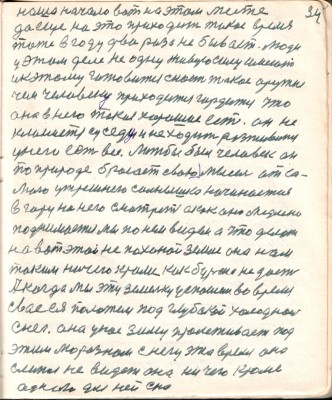 34
наша начало вот на этом месте
да еще на это приходит такое время
что в году два раза не бывает. люди
у этом деле не одну живую силу имеют
и к этому готовится
чем человеку приходится гордится что
она в него такая хорошая есть. он не
кланяется суседу и не ходит
у него есть все. Лишь бы был человек он
по природе бросает свою мысель от са-
мого утреннего солнышка начинается
в гору на него смотреть а как оно медлено
поднимается мы по нем видем а что делат
на вот этой не паханой земле она нам
таким ничего кроме не дает
И когда мы эту земельку успокоим во время
свае ся под глубокой холодной
снег. она у нас зиму пролеживает под
этим морозном снегу эта время она
слепая не видет она ничего кроме
одного дня ней сна